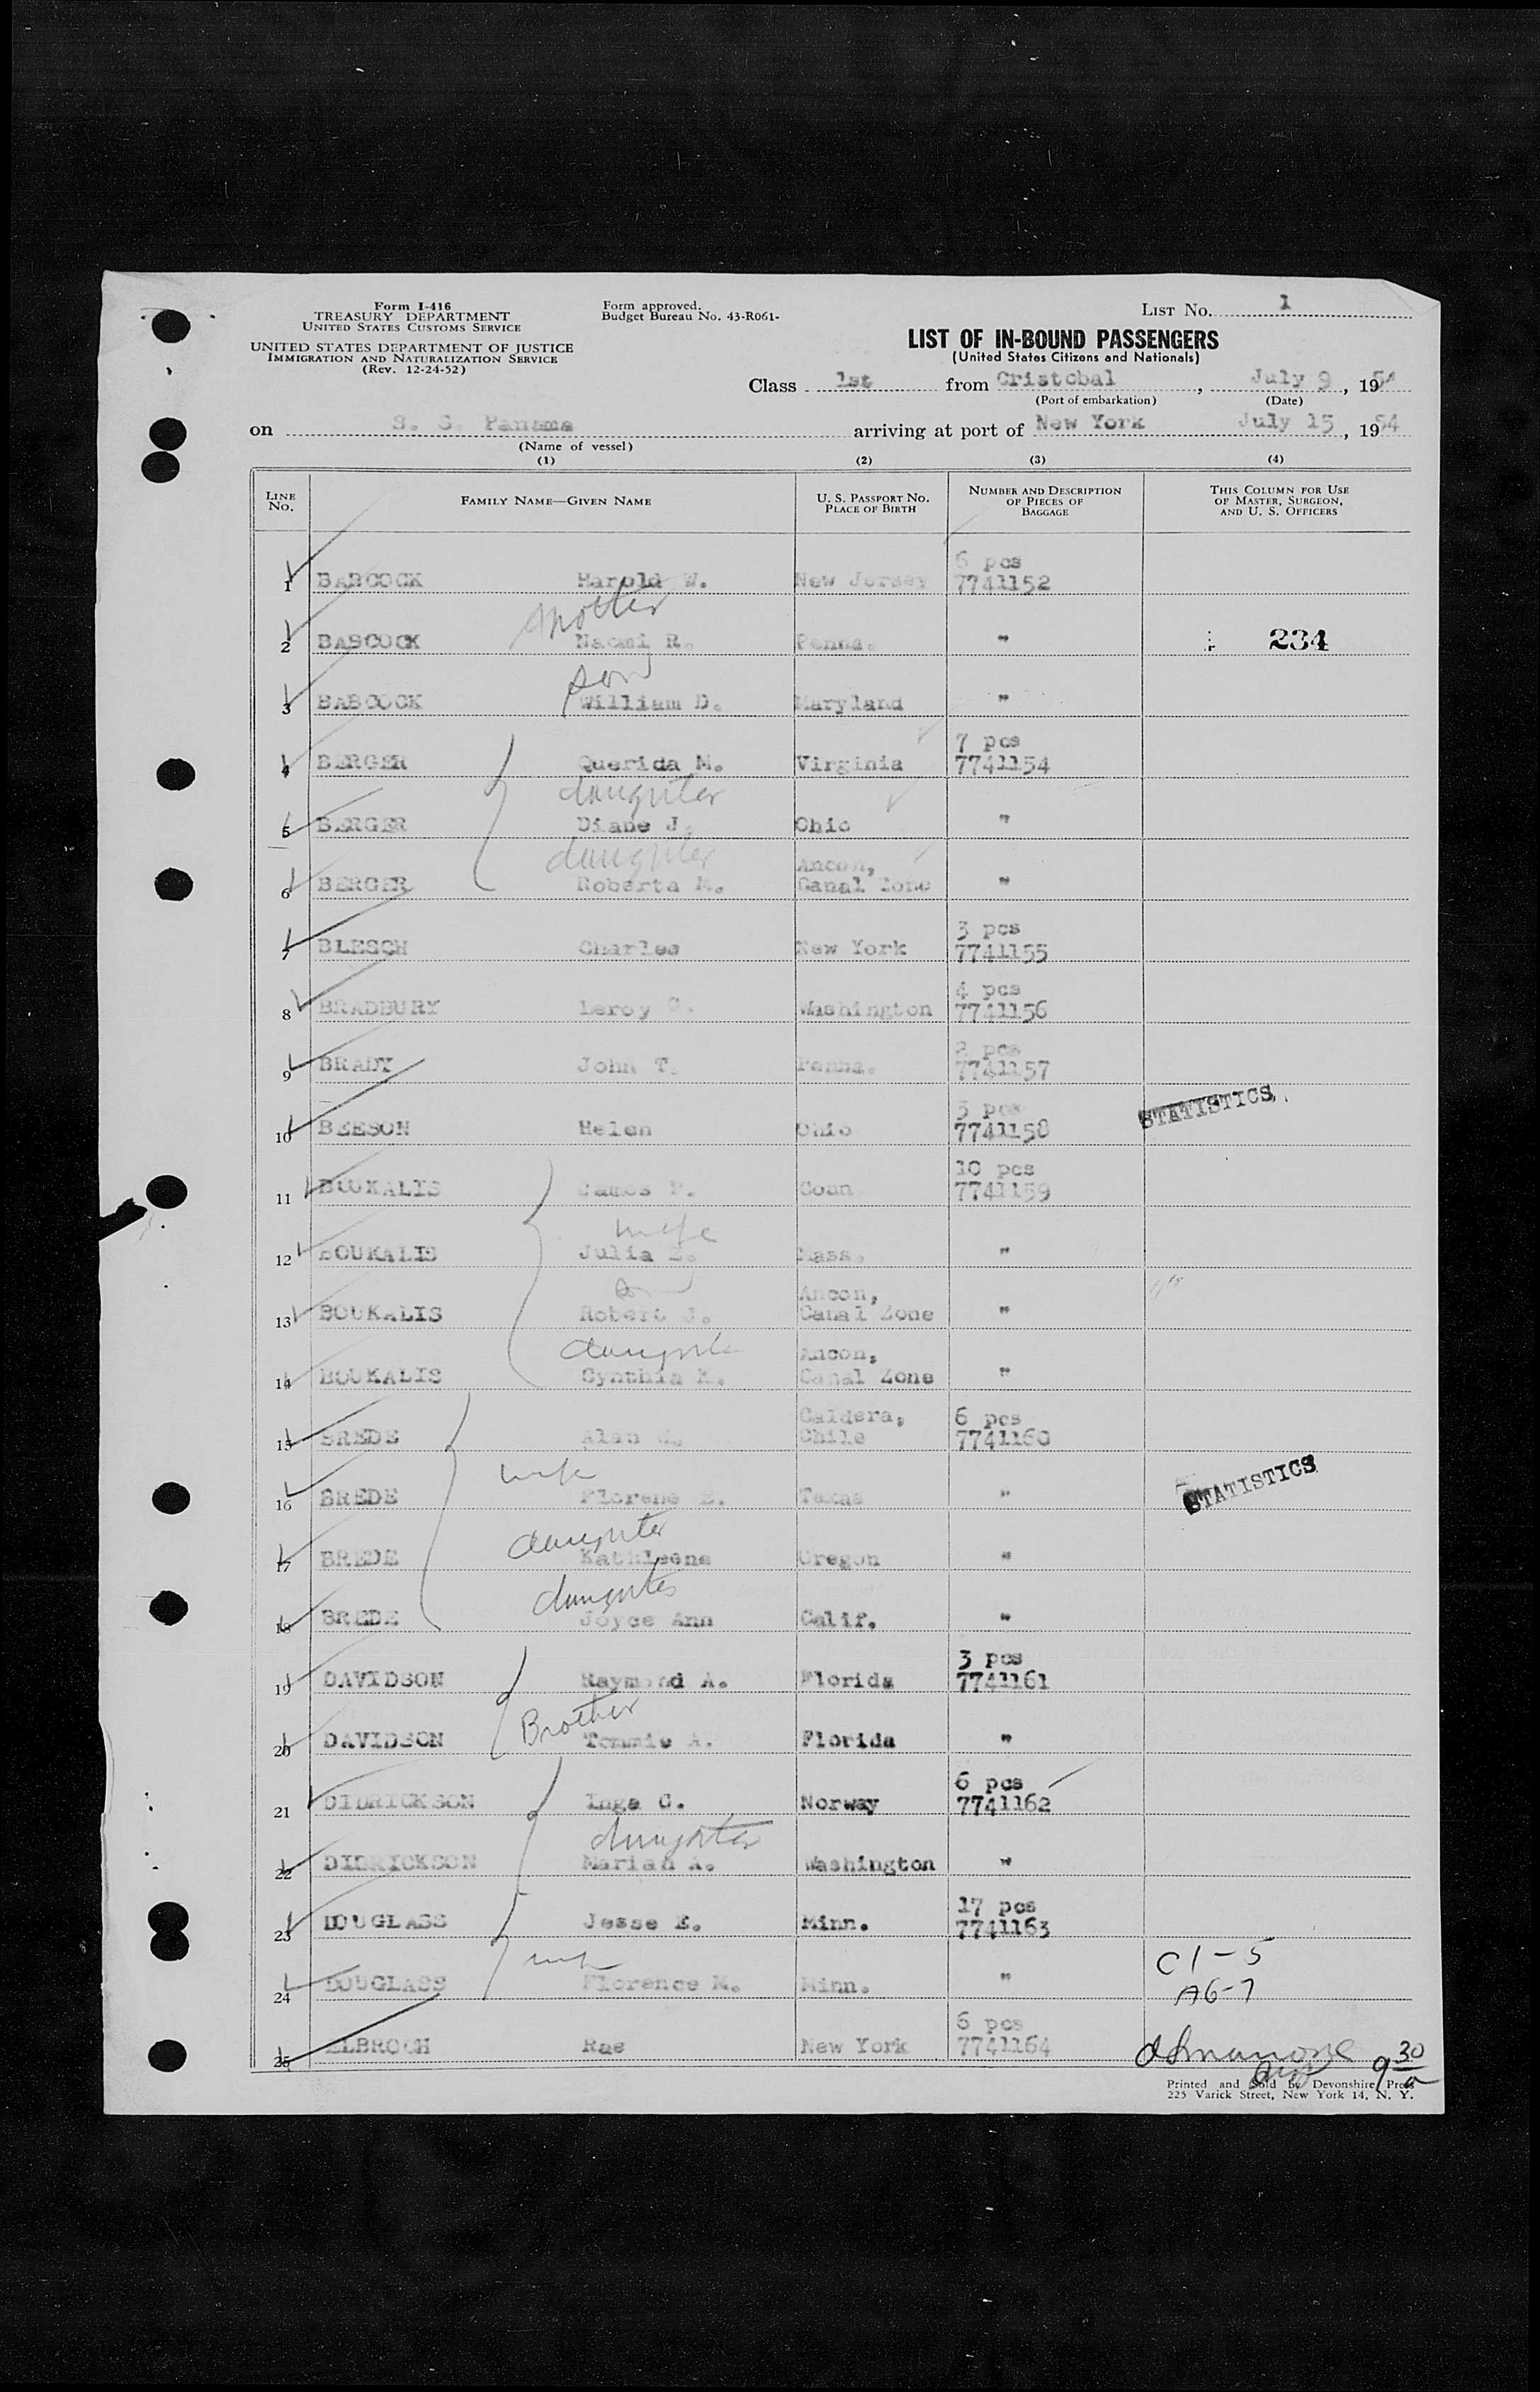 Form I-416
TREASURY DEPARTMENT
UNITED STATES CUSTOMS SERVICE
UNITED STATES DEPARTMENT OF JUSTICE
IMMIGRATION AND NATURALIZATION SERVICE
(Rev. 12-24-52)
Form approved.
Budget Bureau No. 43-R061-
LIST No. 1
LIST OF IN-BOUND PASSENGERS
(United States Citizens and Nationals)
Class 1st from Cristobal, July 9, 1954
(Port of embarkation) (Date)
on S. S. Panama arriving at port of New York July 15, 1954
(Name of vessel)
(1) (2) (3) (4)
LINE No. FAMILY NAME—GIVEN NAME U. S. PASSPORT NO. PLACE OF BIRTH NUMBER AND DESCRIPTION OF PIECES OF BAGGAGE THIS COLUMN FOR USE OF MASTER, SURGEON, AND U. S. OFFICERS
6 pcs
1 BABCOCK Harold W. New Jersey 7741152
mother
2 BABCOCK Naomi R. Penna. " 234
son
3 BABCOCK William D. Maryland "
7 pcs
4 BERGER Querida M. Virginia 7741154
daughter
5 BERGER Diane J. Ohio "
daughter Ancon,
6 BERGER Roberta M. Canal Zone "
3 pcs
7 BLESCH Charles New York 7741155
4 pcs
8 BRADBURY Leroy C. Washington 7741156
2 pcs
9 BRADY John T. Penna. 7741157
3 pcs STATISTICS
10 BEESON Helen Ohio 7741158
10 pcs
11 BOUKALIS James P. Conn 7741159
wife
12 BOUKALIS Julia Mass. "
son Ancon,
13 BOUKALIS Robert J. Canal Zone "
daughter Ancon,
14 BOUKALIS Cynthia K. Canal Zone "
Caldera, 6 pcs
15 BREDE Alan Chile 7741160
wife STATISTICS
16 BREDE Florene E. Texas "
daughter
17 BREDE Kathleene Oregon "
daughter
18 BREDE Joyce Ann Calif. "
3 pcs
19 DAVIDSON Raymond A. Florida 7741161
Brother
20 DAVIDSON Tommie A. Florida "
6 pcs
21 DIDRICKSON Inga C. Norway 7741162
daughter
22 DIDRICKSON Marian A. Washington "
17 pcs
23 DOUGLASS Jesse E. Minn. 7741163
wife C1-5
24 DOUGLASS Florence M. Minn. " A6-7
6 pcs
25 ELBROCH Rae New York 7741164
9 30/a
Printed and Sold by Devonshire Press
225 Varick Street, New York 14, N. Y.